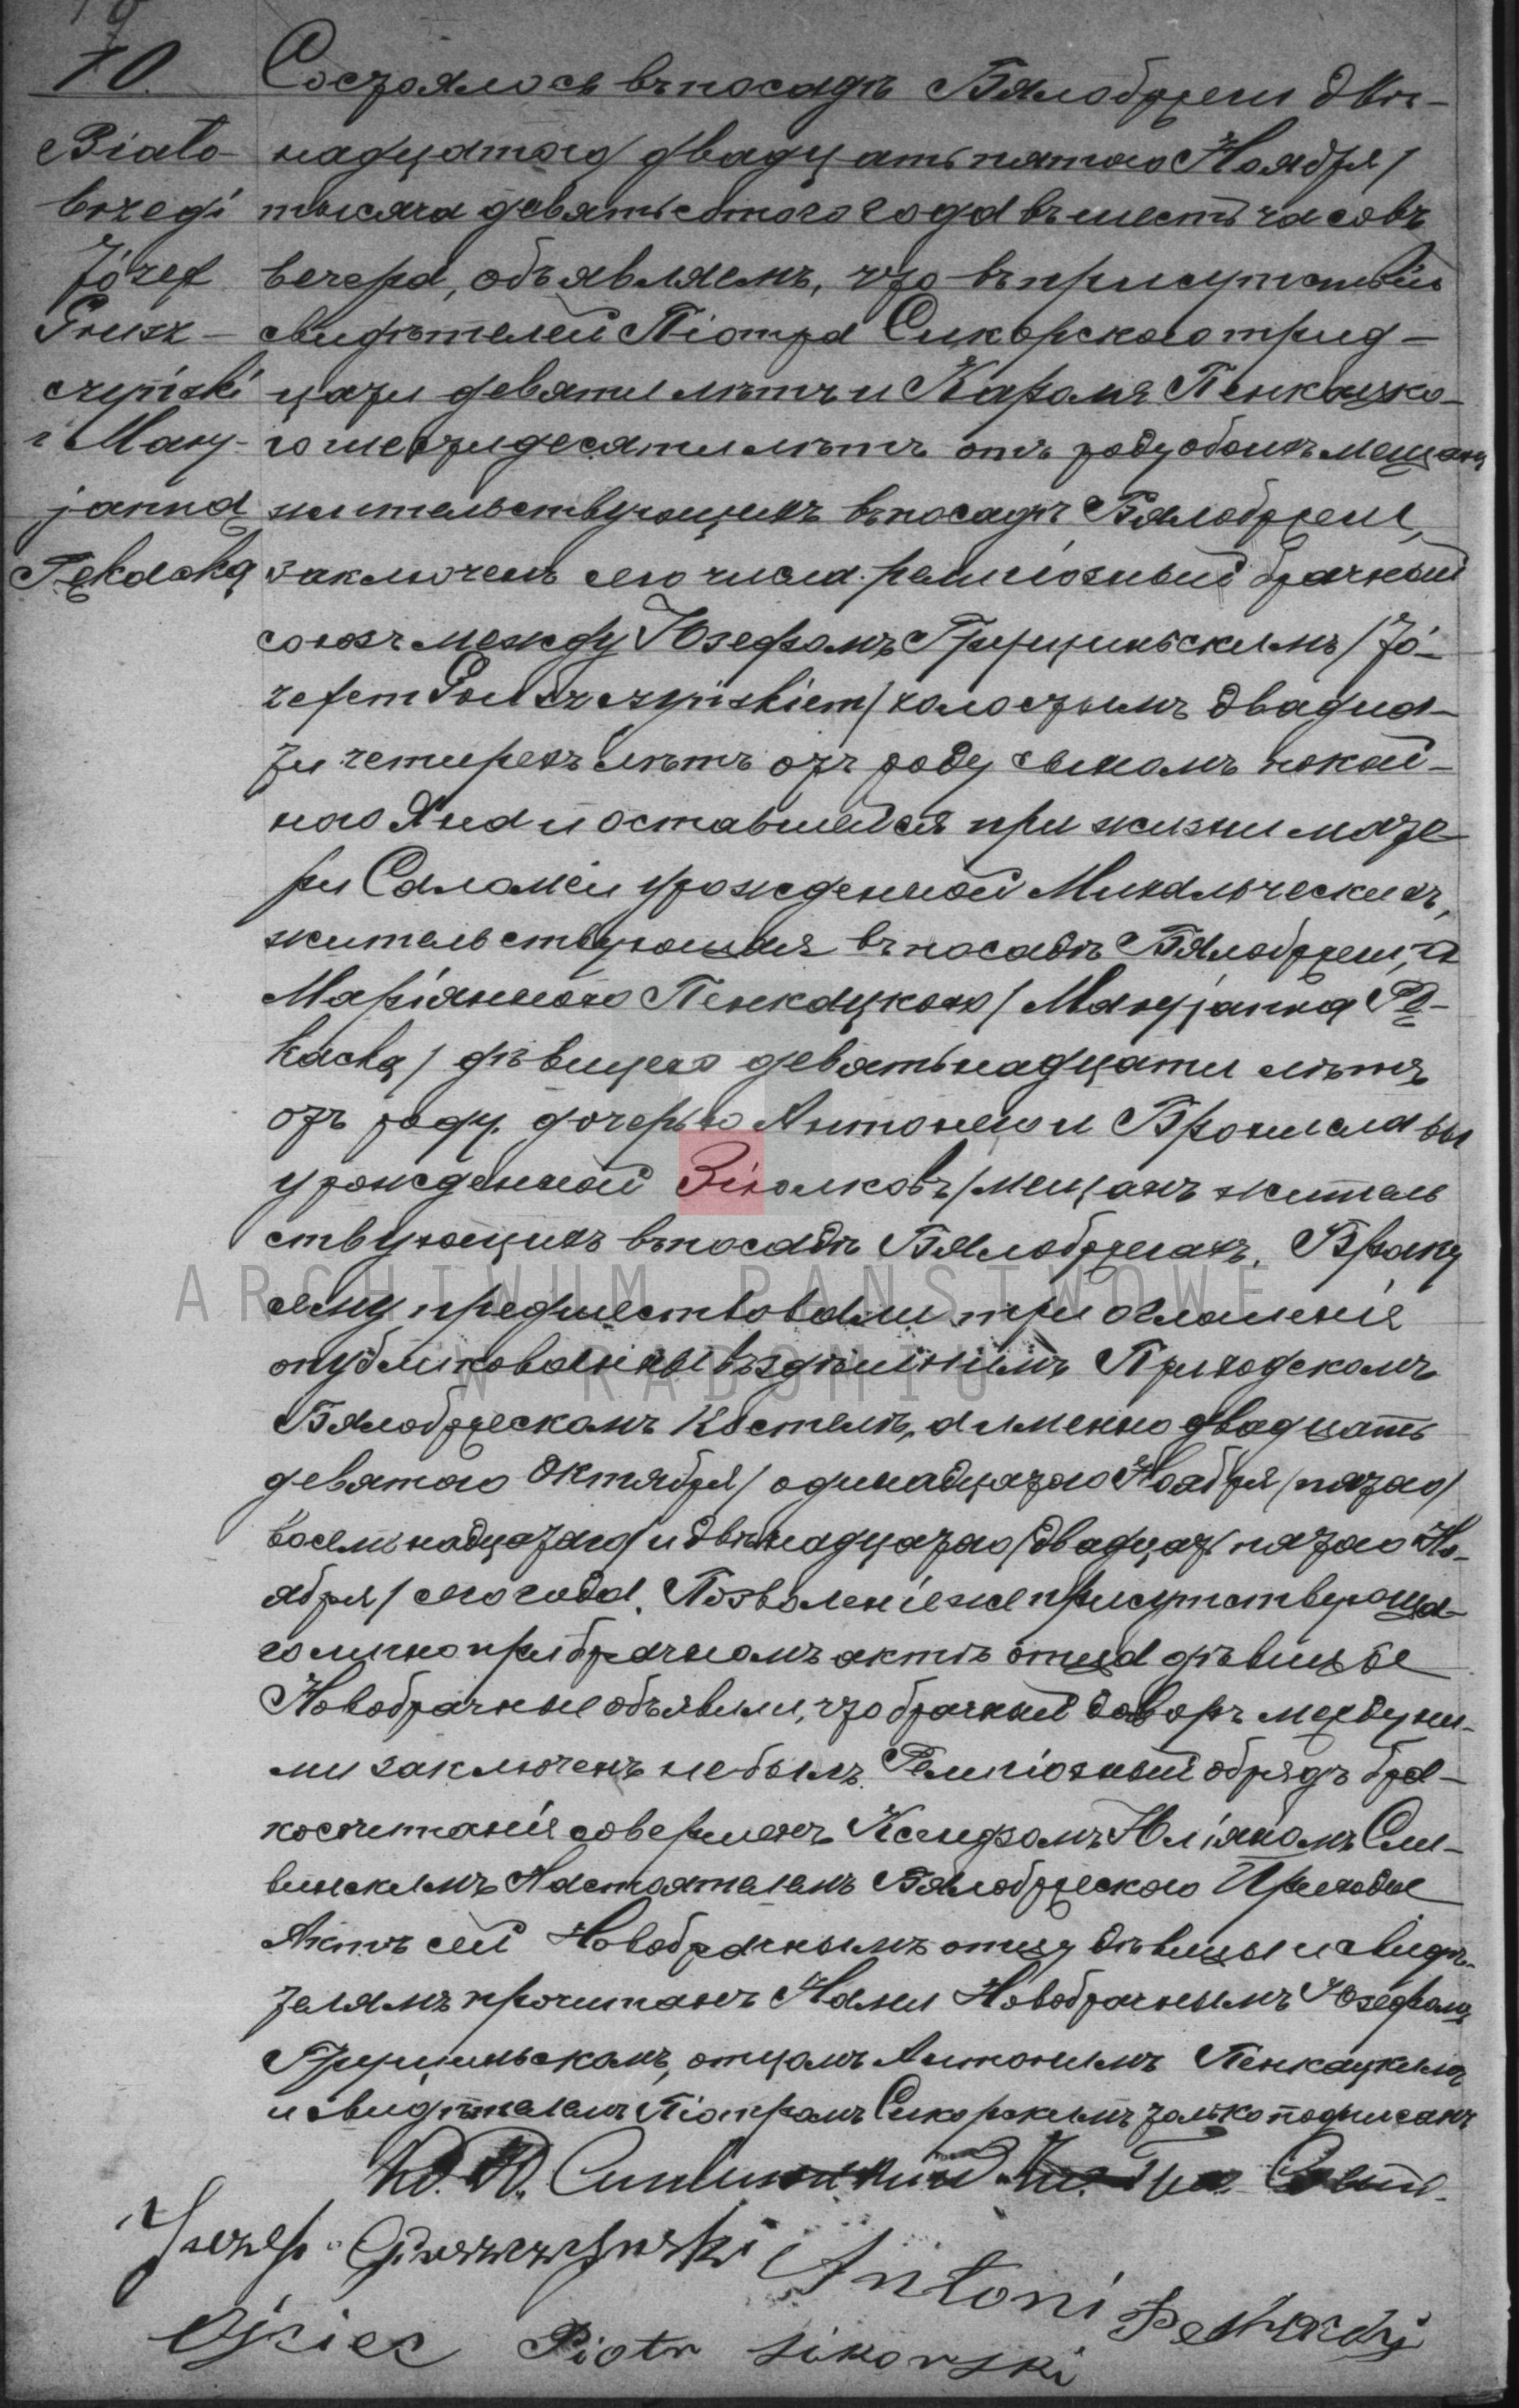 70.
Biało-
brzegi
Józef
Grusz-
czyński
i Mary-
janna
Pękacka
Состоялось въ посадѣ Бялобржеги двѣ-
надцатого / двадцать пятого Ноября /
тысяча девятьсотого года въ шесть часовъ
вечера, объявляемъ, что въ присутствіи
свидѣтелей Піотра Сикорского трид-
цати девяти лѣтъ и Кароля Пенкацко-
го шестидесяти лѣтъ отъ роду обоихъ мещанъ
жительствующихъ въ посадѣ Бялобржеги,
заключенъ сего числа религіозный брачный
союзъ между Юзефомъ Грущиньскимъ / Jó-
zefem Gruszczyńskiem / холостымъ двадца-
ти четырехъ лѣтъ отъ роду сыномъ покой-
ного Яна и оставшейся при жизни мате-
ри Саломеи урожденной Михальческихъ,
жительствующая въ посадѣ Бялобржеги, а
Маріянною Пенкацкою / Maryjanną Pę-
kacką / дѣвицею девятьнадцати лѣтъ
отъ роду, дочерью Антонего и Брониславы
урожденной Зіолковъ / мещанъ житель
ствующихъ въ посадѣ Бялобржегахъ. Браку
сему предшествовали три оглашенія
опубликованные въ здѣшнимъ Приходскомъ
Бялобржескомъ Костелѣ, а именно двадцать
девятого Октября / одинадцатого Ноября / пятого /
восемнадцатого / и двѣнадцатого / двадцать пятого Но-
ября / сего года. Позволеніе же присутствующа-
го лично при брачномъ актѣ отца дѣвицы
Новобрачные объявили, что брачный договоръ между ни-
ми заключенъ небылъ. Религіозный обрядъ бра-
косочетанія совершенъ Ксендзомъ Юліяномъ Сли-
винскимъ Настоятелемъ Бялобржеского Прихода
Актъ сей Новобрачнымъ отцу дѣвицы и свидѣ-
телямъ прочитанъ Нами Новобрачнымъ Юзефомъ
Грущиньскомъ, отцомъ Антонимъ Пенкацкимъ
и свидѣтелемъ Піотромъ Сикорскимъ только подписанъ
Józef Gruszczyński Antoni Pękacki
Ojciec Piotr Sikorski
ARCHIWUM PAŃSTWOWE
W RADOMIU